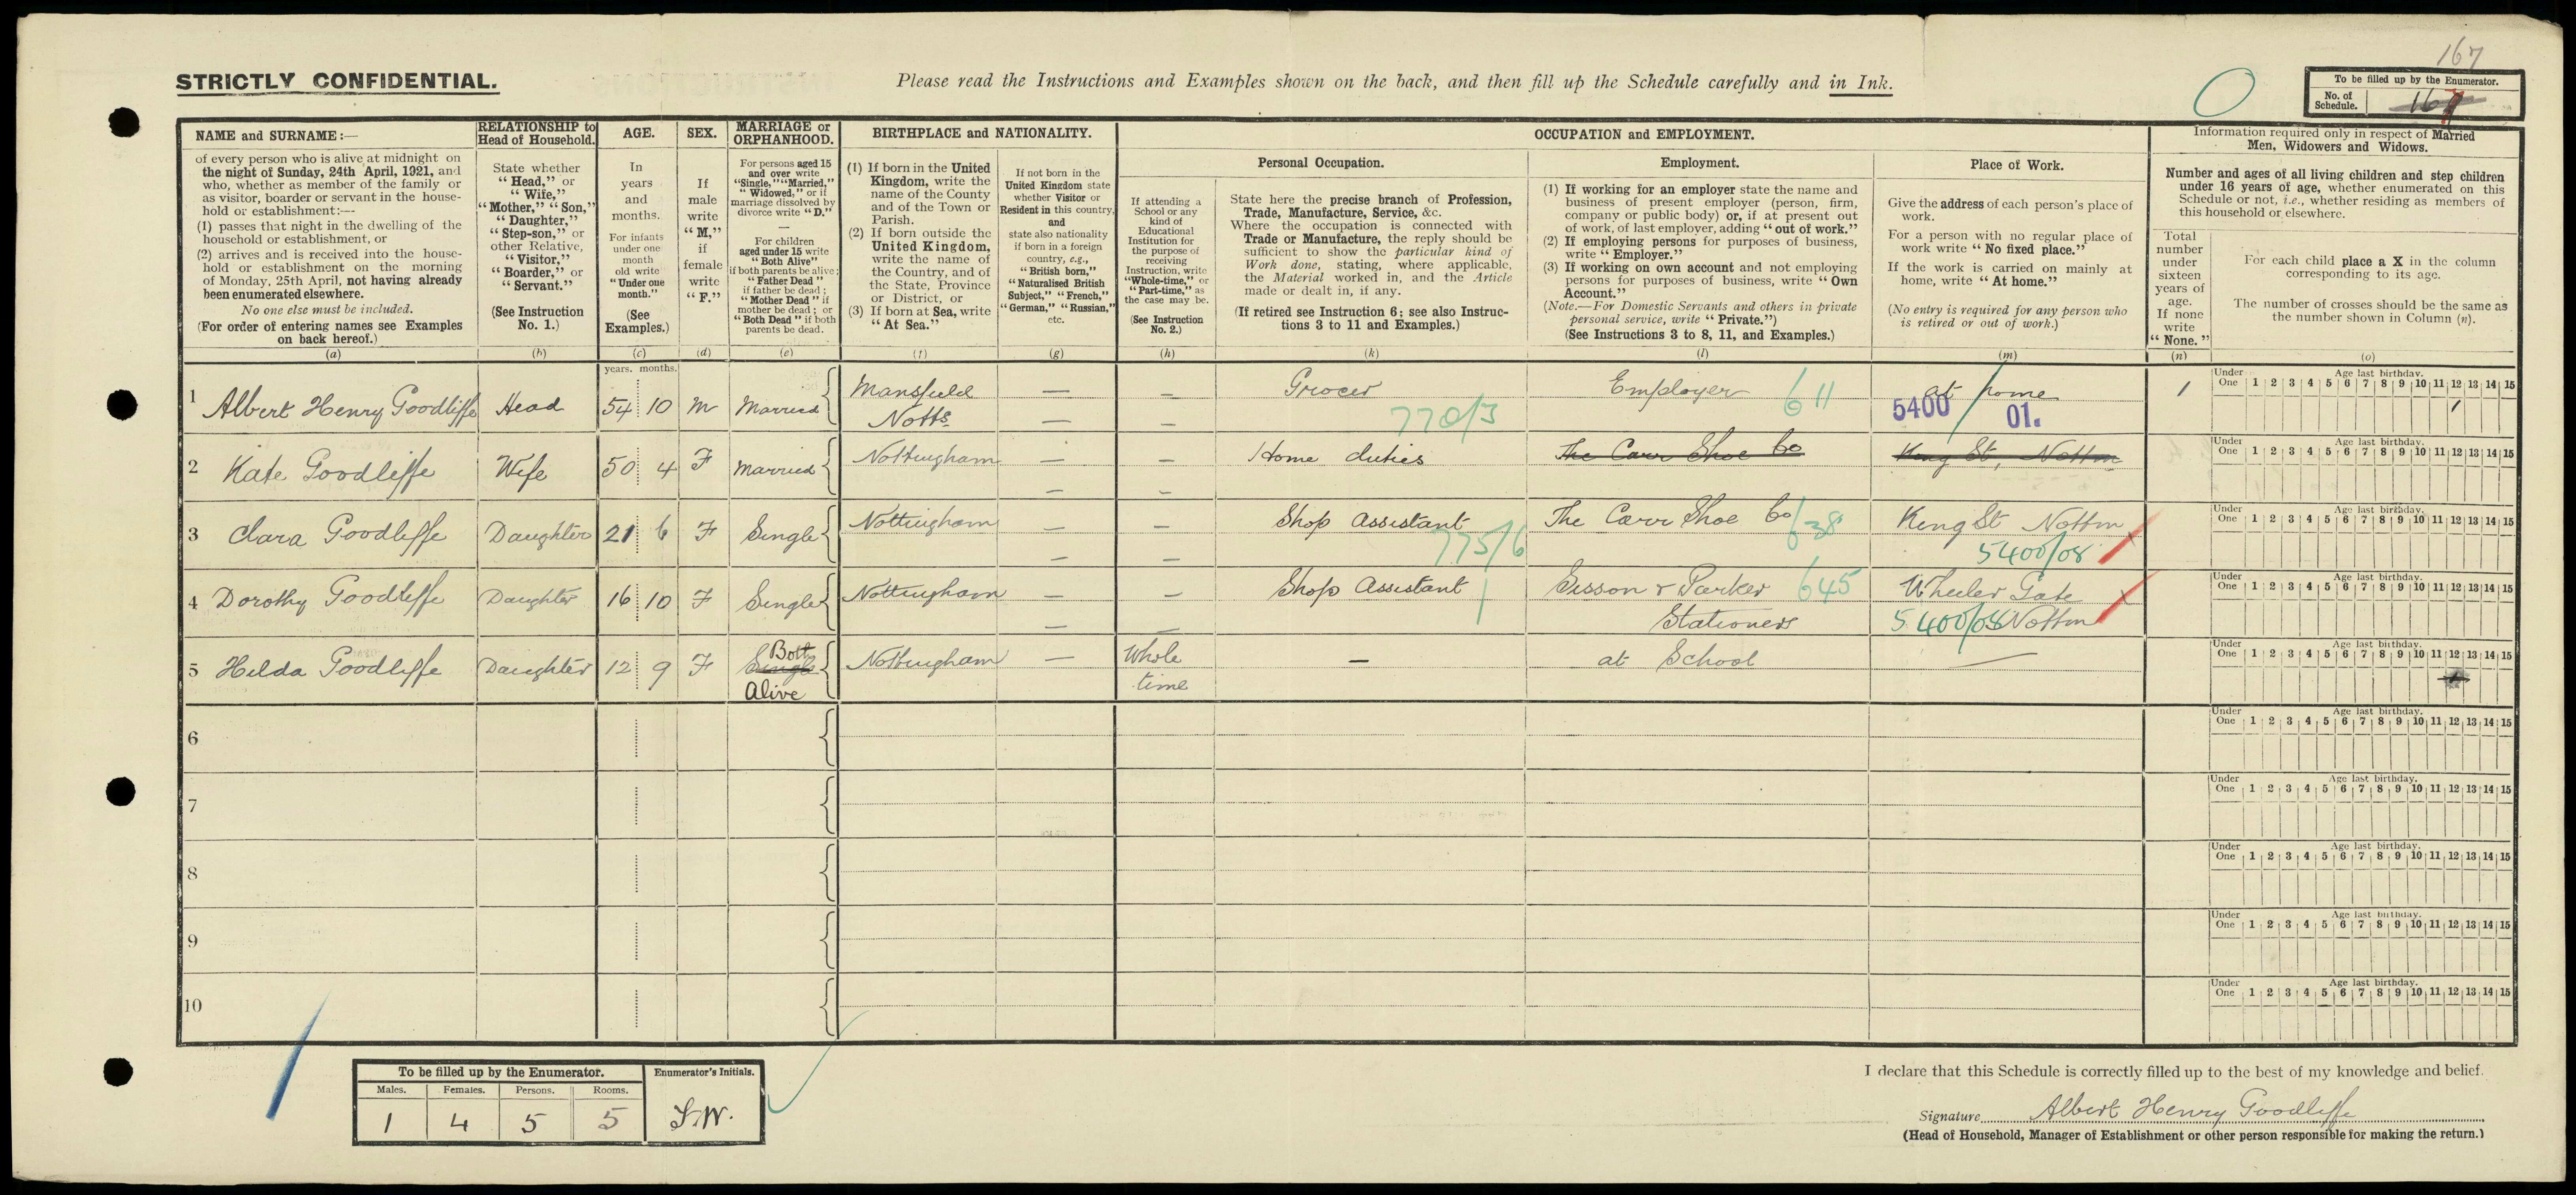 167
STRICTLY CONFIDENTIAL.
Please read the Instructions and Examples shown on the back, and then fill up the Schedule carefully and in Ink.
0
To be filled up by the Enumerator.
No. of Schedule.
NAME and SURNAME:—
of every person who is alive at midnight on
the night of Sunday, 24th April, 1921, and
who, whether as member of the family or
as visitor, boarder or servant in the house-
hold or establishment:—
(1) passes that night in the dwelling of the
household or establishment, or
(2) arrives and is received into the house-
hold or establishment on the morning
of Monday, 25th April, not having already
been enumerated elsewhere.
No one else must be included.
(For order of entering names see Examples
on back hereof.)
(a)
RELATIONSHIP to
Head of Household.
State whether
"Head," or
"Wife,"
"Mother," "Son,"
"Daughter,"
"Step-son," or
other Relative,
"Visitor,"
"Boarder," or
"Servant."
(See Instruction
No. 1.)
(b)
AGE.
In
years
and
months.
For infants
under one
month
old write
"Under one
month."
(See
Examples.)
(c)
SEX.
If
male
write
"M,"
if
female
write
"F."
(d)
MARRIAGE or
ORPHANHOOD.
For persons aged 15
and over write
"Single," "Married,"
"Widowed," or if
marriage dissolved by
divorce write "D."
—
For children
aged under 15 write
"Both Alive"
if both parents be alive;
"Father Dead"
if father be dead;
"Mother Dead" if
mother be dead; or
"Both Dead" if both
parents be dead.
(e)
BIRTHPLACE and NATIONALITY.
(1) If born in the United
Kingdom, write the
name of the County
and of the Town or
Parish.
(2) If born outside the
United Kingdom,
write the name of
the Country, and of
the State, Province
or District, or
(3) If born at Sea, write
"At Sea."
(f)
If not born in the
United Kingdom state
whether Visitor or
Resident in this country,
and
state also nationality
if born in a foreign
country, e.g.,
"British born,"
"Naturalised British
Subject," "French,"
"German," "Russian,"
etc.
(g)
OCCUPATION and EMPLOYMENT.
If attending a
School or any
kind of
Educational
Institution for
the purpose of
receiving
Instruction, write
"Whole-time," or
"Part-time," as
the case may be.
(See Instruction
No. 2.)
(h)
Personal Occupation.
State here the precise branch of Profession,
Trade, Manufacture, Service, &c.
Where the occupation is connected with
Trade or Manufacture, the reply should be
sufficient to show the particular kind of
Work done, stating, where applicable,
the Material worked in, and the Article
made or dealt in, if any.
(If retired see Instruction 6; see also Instruc-
tions 3 to 11 and Examples.)
(k)
Employment.
(1) If working for an employer state the name and
business of present employer (person, firm,
company or public body) or, if at present out
of work, of last employer, adding "out of work."
(2) If employing persons for purposes of business,
write "Employer."
(3) If working on own account and not employing
persons for purposes of business, write "Own
Account."
(Note.—For Domestic Servants and others in private
personal service, write "Private.")
(See Instructions 3 to 8, 11, and Examples.)
(l)
Place of Work.
Give the address of each person's place of
work.
For a person with no regular place of
work write "No fixed place."
If the work is carried on mainly at
home, write "At home."
(No entry is required for any person who
is retired or out of work.)
(m)
Information required only in respect of Married
Men, Widowers and Widows.
Number and ages of all living children and step children
under 16 years of age, whether enumerated on this
Schedule or not, i.e., whether residing as members of
this household or elsewhere.
Total
number
under
sixteen
years of
age.
If none
write
"None."
(n)
For each child place a X in the column
corresponding to its age.
The number of crosses should be the same as
the number shown in Column (n).
(o)
years. months.
1 Albert Henry Goodliffe Head 54 10 M Married Mansfield — — Grocer Employer at home 1
Notts. — — 770/3 611 5400 / 01.
Under One 1 2 3 4 5 6 7 8 9 10 11 12 13 14 15
Age last birthday.
2 Kate Goodliffe Wife 50 4 F Married Nottingham — — Home duties The Carr Shoe Co King St, Nottm
Under One 1 2 3 4 5 6 7 8 9 10 11 12 13 14 15
Age last birthday.
3 Clara Goodliffe Daughter 21 6 F Single Nottingham — — Shop Assistant The Carr Shoe Co 638 King St Nottm
775/6 5400/08
Under One 1 2 3 4 5 6 7 8 9 10 11 12 13 14 15
Age last birthday.
4 Dorothy Goodliffe Daughter 16 10 F Single Nottingham — — Shop Assistant Sisson & Parker 645 Wheeler Gate
Stationers 5400/08 Nottm
Under One 1 2 3 4 5 6 7 8 9 10 11 12 13 14 15
Age last birthday.
5 Hilda Goodliffe Daughter 12 9 F Single Both Alive Nottingham — Whole time — at School —
Under One 1 2 3 4 5 6 7 8 9 10 11 12 13 14 15
Age last birthday.
6
Under One 1 2 3 4 5 6 7 8 9 10 11 12 13 14 15
Age last birthday.
7
Under One 1 2 3 4 5 6 7 8 9 10 11 12 13 14 15
Age last birthday.
8
Under One 1 2 3 4 5 6 7 8 9 10 11 12 13 14 15
Age last birthday.
9
Under One 1 2 3 4 5 6 7 8 9 10 11 12 13 14 15
Age last birthday.
10
Under One 1 2 3 4 5 6 7 8 9 10 11 12 13 14 15
Age last birthday.
To be filled up by the Enumerator.
Males. Females. Persons. Rooms.
1 4 5 5
Enumerator's Initials.
I declare that this Schedule is correctly filled up to the best of my knowledge and belief.
Signature Albert Henry Goodliffe
(Head of Household, Manager of Establishment or other person responsible for making the return.)